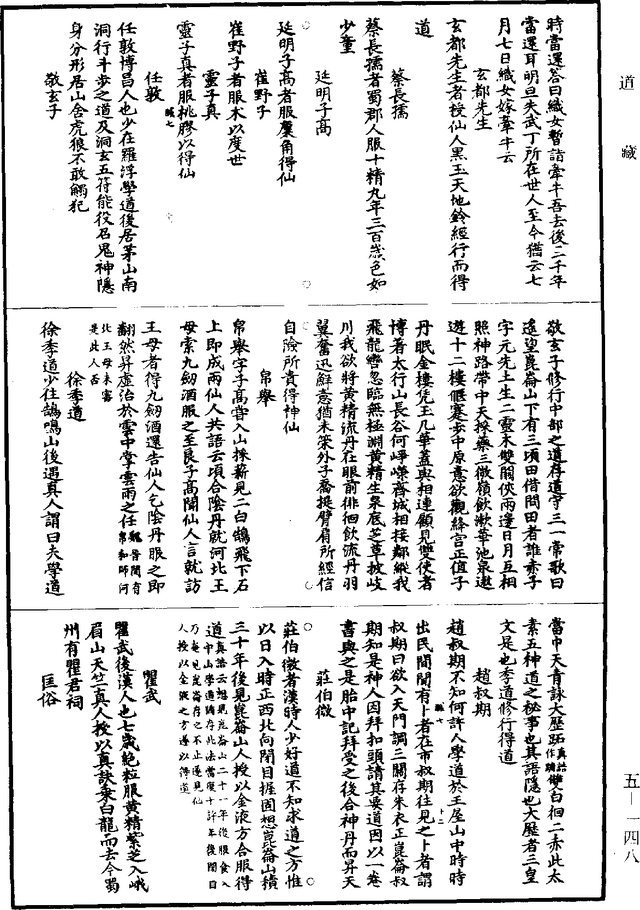 道藏
時當還答曰織女暫詣牽牛吾去後三千年
當還耳明旦失武丁所在世人至今猶云七
月七日織女嫁牽牛云
玄都先生
玄都先生者授仙人黑玉天地鈴經行而得
道
蔡長孺
蔡長孺者蜀郡人服十精丸年三百歲色如
少童
延明子高
延明子高者服麋角得仙
崔野子
崔野子者服朮以度世
靈子真
靈子真者服桃膠以得仙
任敦
任敦博昌人也少在羅浮學道後居茅山南
洞行斗步之道及洞玄五符能役召鬼神隱
身分形居山舍虎狼不敢觸犯
敬玄子
敬玄子修行中部之道存道守三一常歌曰
遙望崑崙山下有三頃田借問田者誰赤子
字元先上生二靈木雙闕俠兩邊日月互相
照神路帶中天採藥三微嶺飲漱華池泉遨
遊十二樓偃蹇步中原意欲觀絳宮正值子
丹眠金樓凭玉几華蓋與相連顧見雙使者
博著太行山長谷何崢嶸齊城相接鄰縱我
飛龍轡忽臨無極淵黃精生泉底芝草披岐
川我欲將黃精流丹在眼前徘徊飲流丹羽
翼奮迅鮮意猶未策外子喬挺臂肩所經信
自險所貴得神仙
帛舉
帛舉字子高嘗入山採薪見二白鵠飛下石
上即成兩仙人共語云頃合陰丹就河北王
母索九劒酒服之至良子高聞仙人言就訪
王母者得九劒酒還告仙人乞陰丹服之即
翻然昇虛治於雲中掌雲雨之任魏晉間有帛和師河
北王母未審是此人否
徐季道
徐季道少往鵠鳴山後遇真人謂曰夫學道
當巾天青詠大歷跖雙白徊二赤此太
素五神道之秘事也其語隱也大歷者三皇
文是也季道修行得道
趙叔期
趙叔期不知何許人學道於王屋山中時時
出民間聞有卜者在市叔期往見之卜者謂
叔期曰欲入天門調三關存朱衣正崑崙叔
期知是神人因拜扣頭請其要道因以一卷
書與之是胎中記拜受之後合神丹而昇天
莊伯微
莊伯微者漢時人少好道不知求道之方惟
以日入時正西北向閉目握固想崑崙山積
三十年後見崑崙山人授以金液方合服得
道
瞿武
瞿武後漢人也七歲絕粒服黃精紫芝入峨
眉山天竺真人授以真訣乘白龍而去今蜀
州有瞿君祠
匡俗
五—一四八